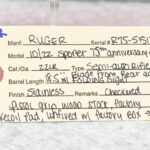 Manf. RUGER Serial# RTS-5515
Model 10/22 Sporter 75th anniversary
Cal./Ga. 22LR Type Semi-auto Rifle
Barrel Length 18.5" Sights Blade Front, Rear
Folding
Finish Stainless Remarks Checkered
Pistol grip wood stock factory
recoil pad, unfired w/ factory box